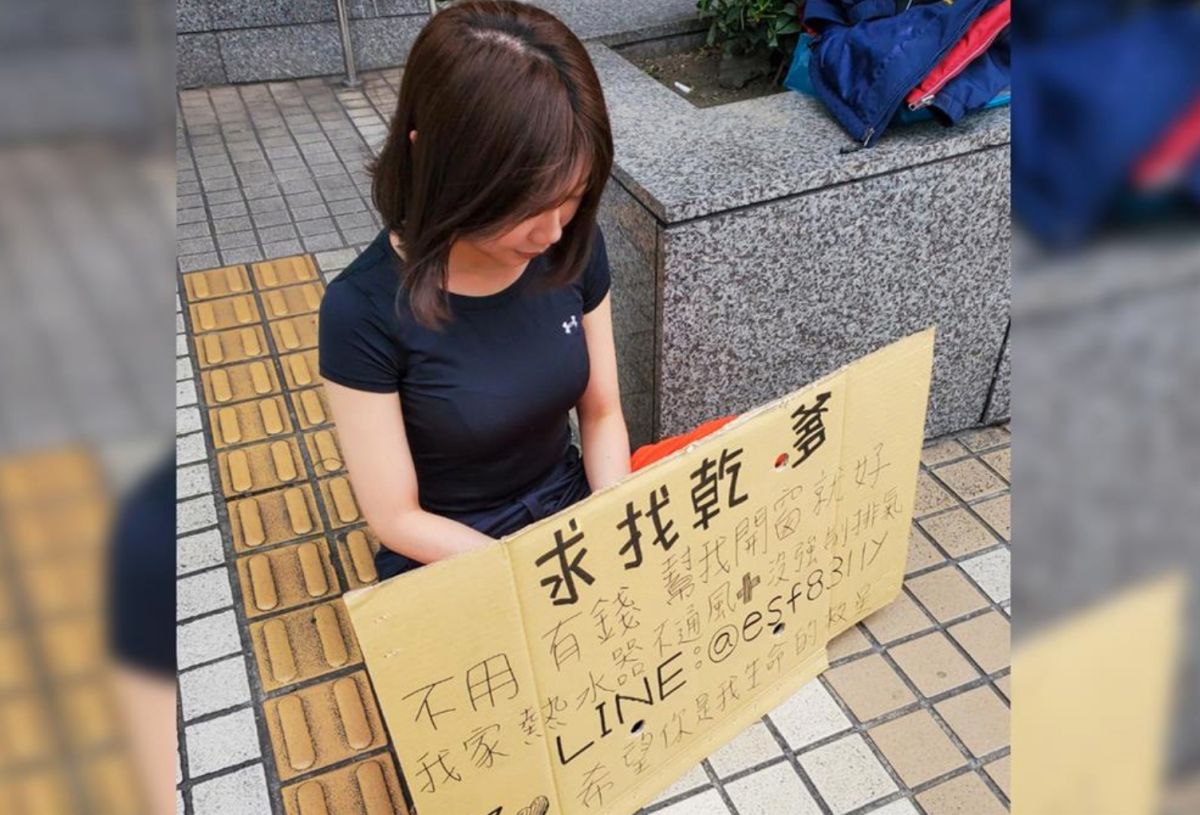 求找乾爹
不用有錢 幫我開窗就好
我家熱水器不通風+沒強制排氣
LINE:@esf8311y
希望你是我生命的救星